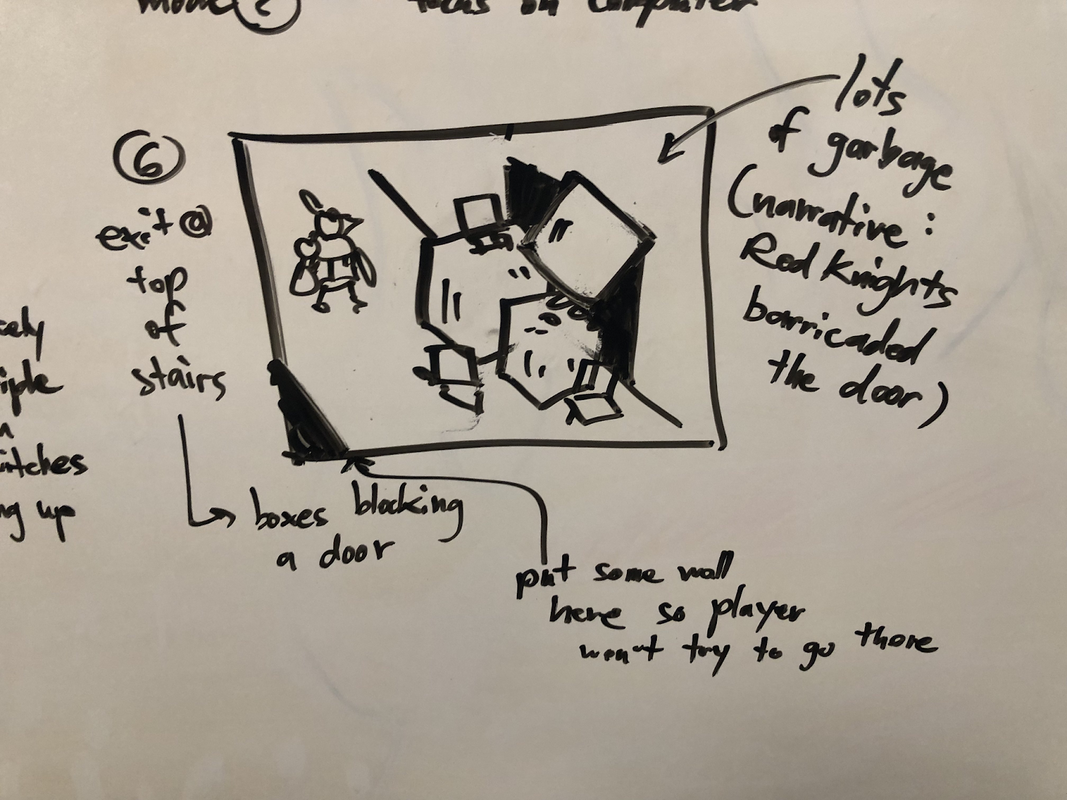 on computer
6
exit @
top
of
stairs
boxes blocking
a door
lots
of garbage
(narrative:
Red Knights
barricaded
the door)
put some wall
here so player
won't try to go there
ng up